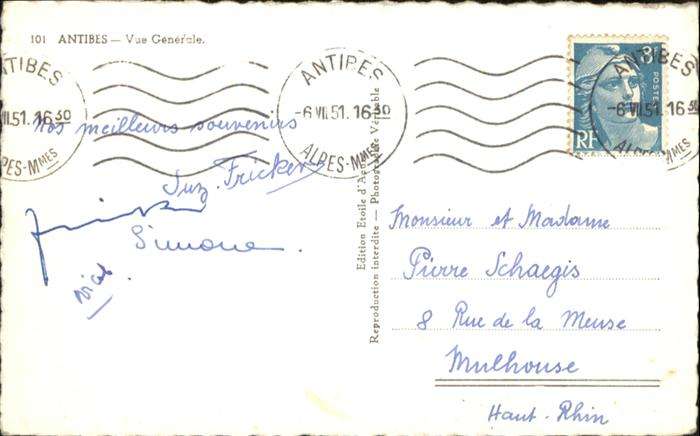 101 ANTIBES — Vue Generale.
ANTIBES
-6 VII.51. 16 30
ALPES-Mmes
ANTIBES
VII.51. 16 30
ALPES-Mmes
ANTIBES
-6 VII.51. 16 30
ALPES-Mmes
POSTES
RF
Nos meilleurs souvenirs
Suz. Fricker
Simone.
Edition Etoile d'
Reproduction interdite — Photographie Véritable
Monsieur et Madame
Pierre Schaegis
8 Rue de la Meuse
Mulhouse
Haut-Rhin